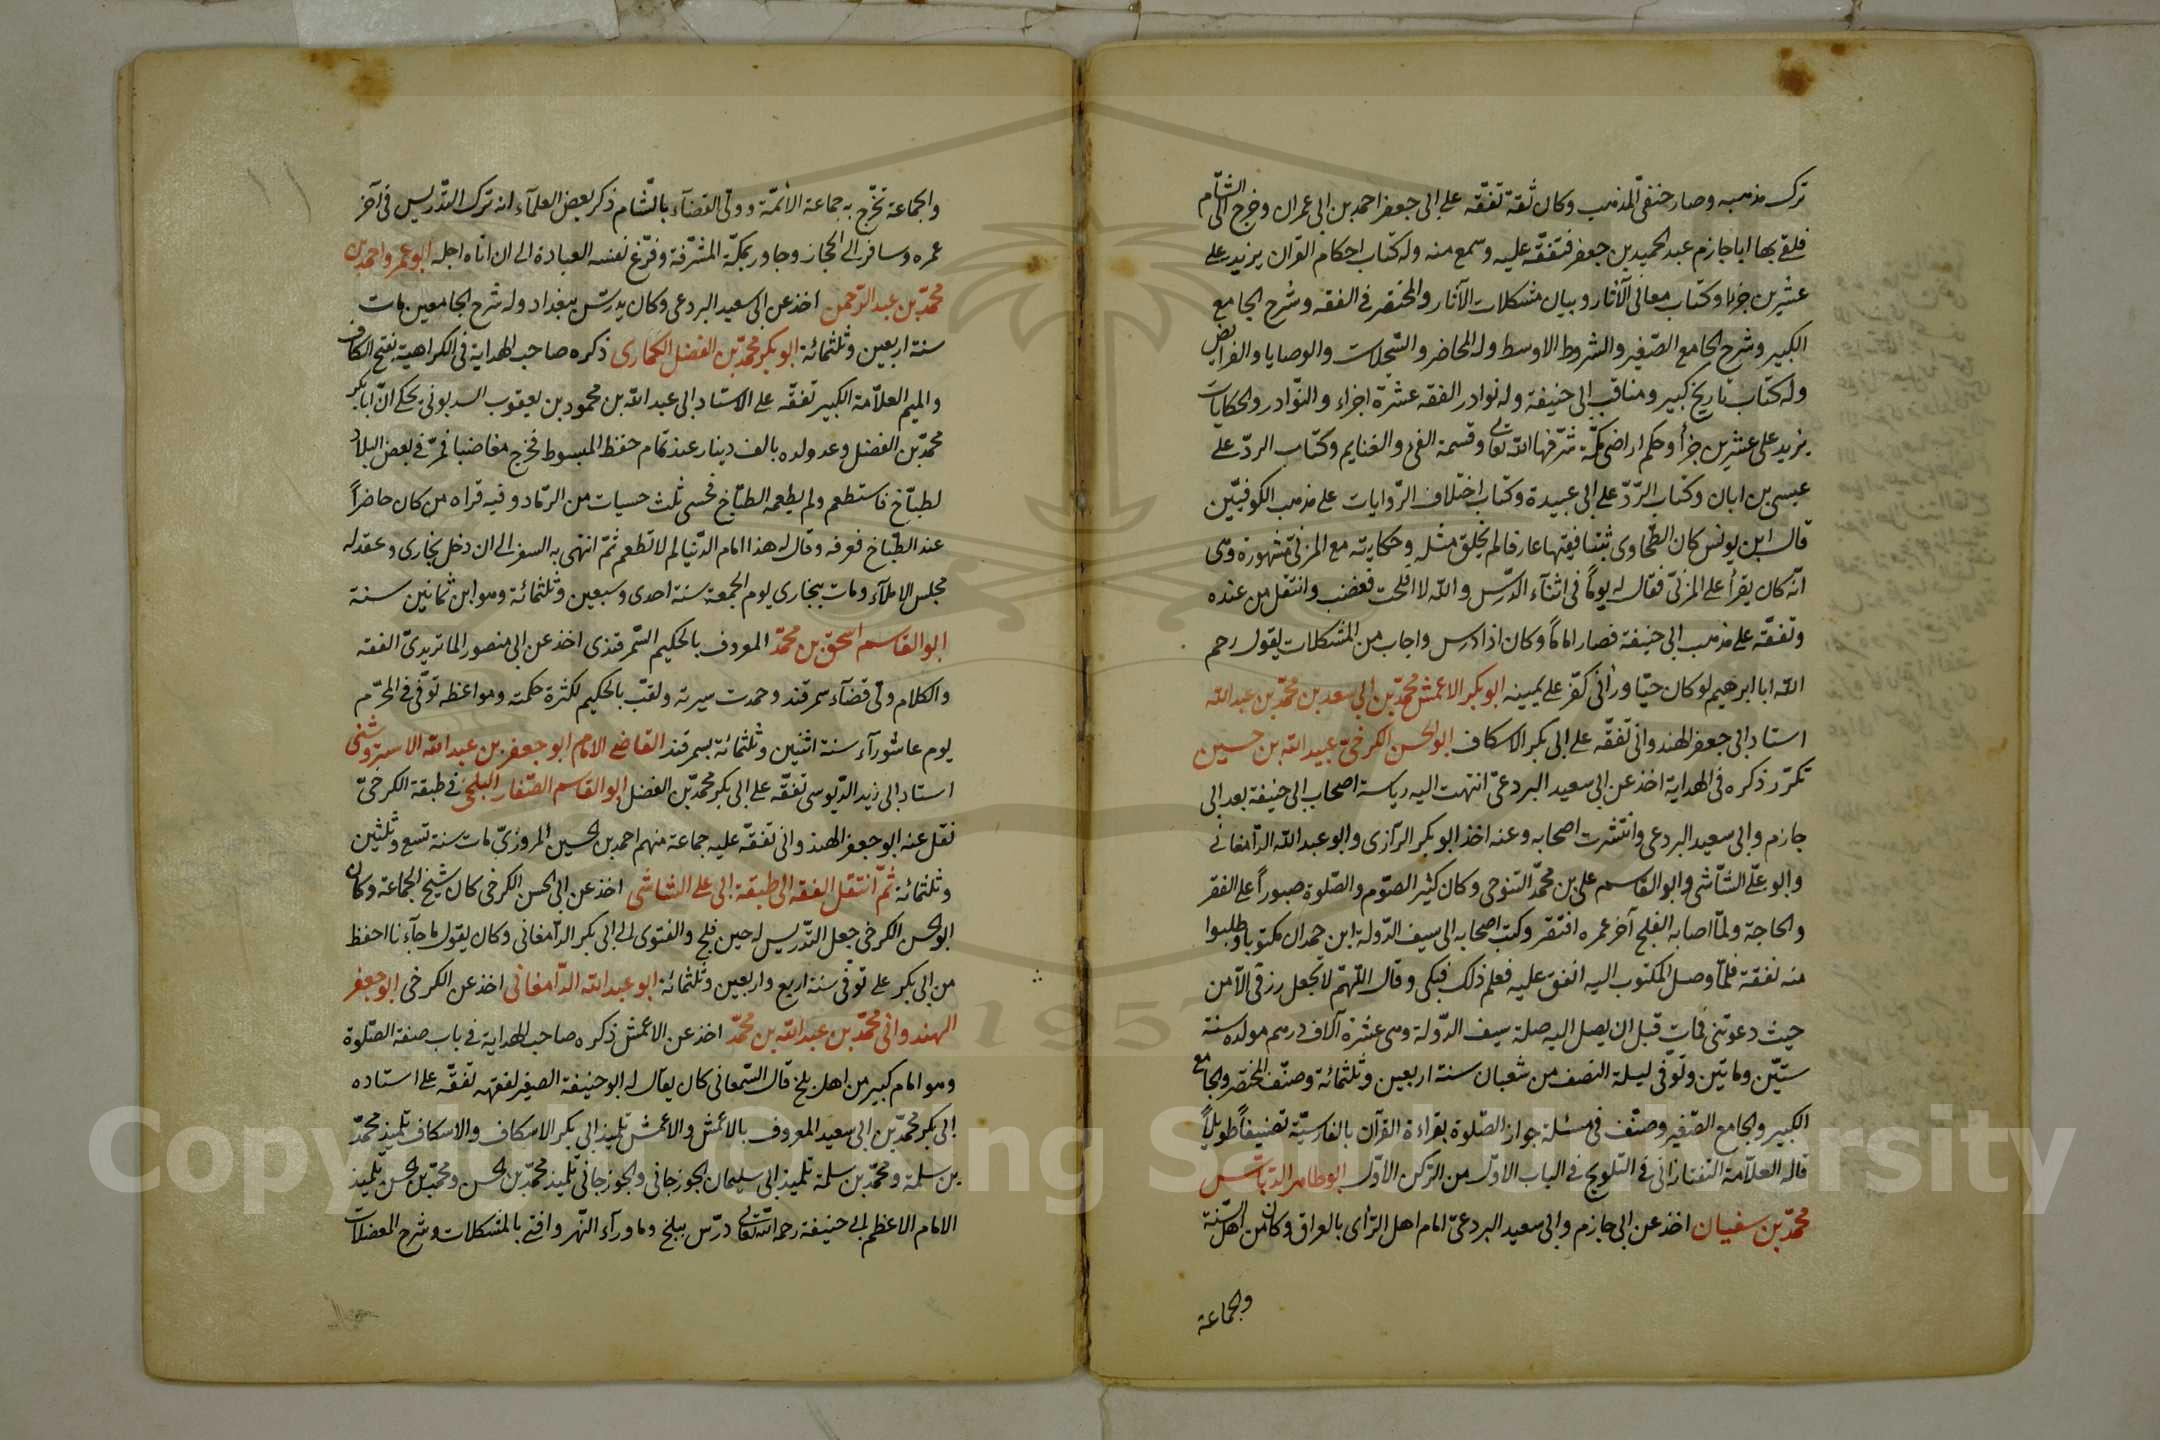 ترك مذهبه وصار حنفي المذهب وكان ثقة تفقه على ابى جعفر احمد بن ابى عمران وخرج الى الشام
فلقى بها ابا حازم عبد الحميد بن جعفر فتفقه عليه وسمع منه وله كتاب احكام القرآن يزيد على
عشرين جزا وكتاب معانى الآثار وبيان مشكلات الآثار والمختصر فى الفقه وشرح الجامع
الكبير وشرح الجامع الصغير والشروط الاوسط وله المحاضر والسجلات والوصايا والفرايض
وله كتاب تاريخ كبير ومناقب ابى حنيفة وله نوادر الفقه عشرة اجزاء والنوادر والحكايات
يزيد على عشرين جزأ وحكم اراضى مكة شرفها الله تعا وقسمة الفئ والغنايم وكتاب الرد على
عيسى بن ابان وكتاب الرد على ابى عبيدة وكتاب اختلاف الروايات على مذهب الكوفيين
قال ابن يونس كان الطحاوى ثبتا فقيها عارفا لم يخلق مثله وحكايته مع المزنى مشهورة وهى
انه كان يقرأ على المزنى فقال له يوما فى اثناء الدرس والله لا افلحت فغضب وانتقل من عنده
وتفقه على مذهب ابى حنيفة فصار اماما وكان اذا درس واجاب من المشكلات يقول رحم
الله ابا ابرهيم لو كان حيا ورأنى كفر على يمينه ابو بكر الاعمش محمد بن ابى سعد بن محمد بن عبد الله
استاد ابى جعفر الهندوانى تفقه على ابى بكر الاسكاف ابو الحسن الكرخى عبيد الله بن حسين
تكرر ذكره فى الهداية اخذ عن ابى سعيد البردعى انتهت اليه رياسة اصحاب ابى حنيفة بعد ابى
حازم وابى سعيد البردعى وانتشرت اصحابه وعنه اخذ ابو بكر الرازى وابو عبد الله الدامغانى
وابو على الشاشى وابو القاسم على بن محمد التنوخى وكان كثير الصوم والصلوة صبورا على الفقر
والحاجة ولما اصابه الفلج آخر عمره افتقر وكتب اصحابه الى سيف الدولة ابن حمدان مكتوبا وطلبوا
منه نفقة فلما وصل المكتوب اليه انفق عليه فعلم ذلك فبكى وقال اللهم لا تجعل رزقى الا من
حيث دعوتنى فمات قبل ان يصل اليه صلة سيف الدولة وهى عشرة آلاف درهم مولده سنة
ستين وماتين وتوفى ليلة النصف من شعبان سنة اربعين وثلثمائة وصنف المختصر والجامع
الكبير والجامع الصغير وصنف فى مسئلة جواز الصلوة بقراءة القرآن بالفارسية تصنيفا طويلا
قاله العلامة التفتازانى فى التلويح فى الباب الاول من الركن الاول ابو طاهر الدباس
محمد بن سفيان اخذ عن ابى حازم وابى سعيد البردعى امام اهل الرأى بالعراق وكان من اهل السنة
والجماعة
والجماعة تخرج به جماعة الائمة وولى القضاء بالشام ذكر بعض العلماء انه ترك التدريس فى آخر
عمره وسافر الى الحجاز وجاور بمكة المشرفة وفرغ نفسه العبادة الى ان اتاه اجله ابو عمرو احمد بن
محمد بن عبد الرحمن اخذ عن ابى سعيد البردعى وكان يدرس ببغداد وله شرح الجامعين مات
سنة اربعين وثلثمائة ابو بكر محمد بن الفضل الكمارى ذكره صاحب الهداية فى الكراهية بفتح الكاف
والميم العلامة الكبير تفقه على الاستاد ابى عبد الله بن محمود بن يعقوب السبديونى يحكى ان ابا بكر
محمد بن الفضل وعد ولده بالف دينار عند تمام حفظ المبسوط فخرج مغاضبا فمر فى بعض البلاد
لطباخ فاستطعم ولم يطعمه الطباخ فحسى ثلث حسيات من الرماد وفيه قراه من كان حاضرا
عند الطباخ فعرفه وقال له هذا امام الدنيا لم لا تطعم ثم انتهى به السفر الى ان دخل بخارى وعقد له
مجلس الاملآء ومات ببخارى يوم الجمعة سنة احدى وسبعين وثلثمائة وهو ابن ثمانين سنة
ابو القاسم اسحق بن محمد المعروف بالحكيم السمرقندى اخذ عن ابى منصور الماتريدى الفقه
والكلام ولى قضآء سمرقند وحمدت سيرته ولقب بالحكيم لكثرة حكمته ومواعظه توفى فى المحرم
يوم عاشورآء سنة اثنين وثلثمائة بسمرقند القاضى الامام ابو جعفر بن عبد الله الاستروشنى
استاد ابى زيد الدبوسى تفقه على ابى بكر محمد بن الفضل ابو القاسم الصفار البلخى فى طبقة الكرخى
نقل عنه ابو جعفر الهندوانى تفقه عليه جماعة منهم احمد بن الحسين المروزى مات سنة تسع وثلثين
وثلثمائة ثم انتقل الفقه الى طبقة ابى على الشاشى اخذ عن ابى الحسن الكرخى كان شيخ الجماعة وكان
ابو الحسن الكرخى جعل التدريس له حين فلج والفتوى الى ابى بكر الدامغانى وكان يقول ما جآءنا احفظ
من ابى بكر على توفى سنة اربع واربعين وثلثمائة ابو عبد الله الدامغانى اخذ عن الكرخى ابو جعفر
الهندوانى محمد بن عبد الله بن محمد اخذ عن الاعمش ذكره صاحب الهداية فى باب صفة الصلوة
وهو امام كبير من اهل بلخ قال السمعانى كان يقال له ابو حنيفة الصغير لفقهه تفقه على استاده
ابى بكر محمد بن ابى سعيد المعروف بالاعمش والاعمش تلميذ ابى بكر الاسكاف والاسكاف تلميذ محمد
بن سلمة ومحمد بن سلمة تلميذ ابى سليمان الجوزجانى والجوزجانى تلميذ محمد بن الحسن ومحمد بن الحسن تلميذ
الامام الاعظم ابى حنيفة رحمه الله تعالى درس ببلخ وما ورآء النهر وافتى بالمشكلات وشرح المعضلات
1957
Copyright © King Saud University